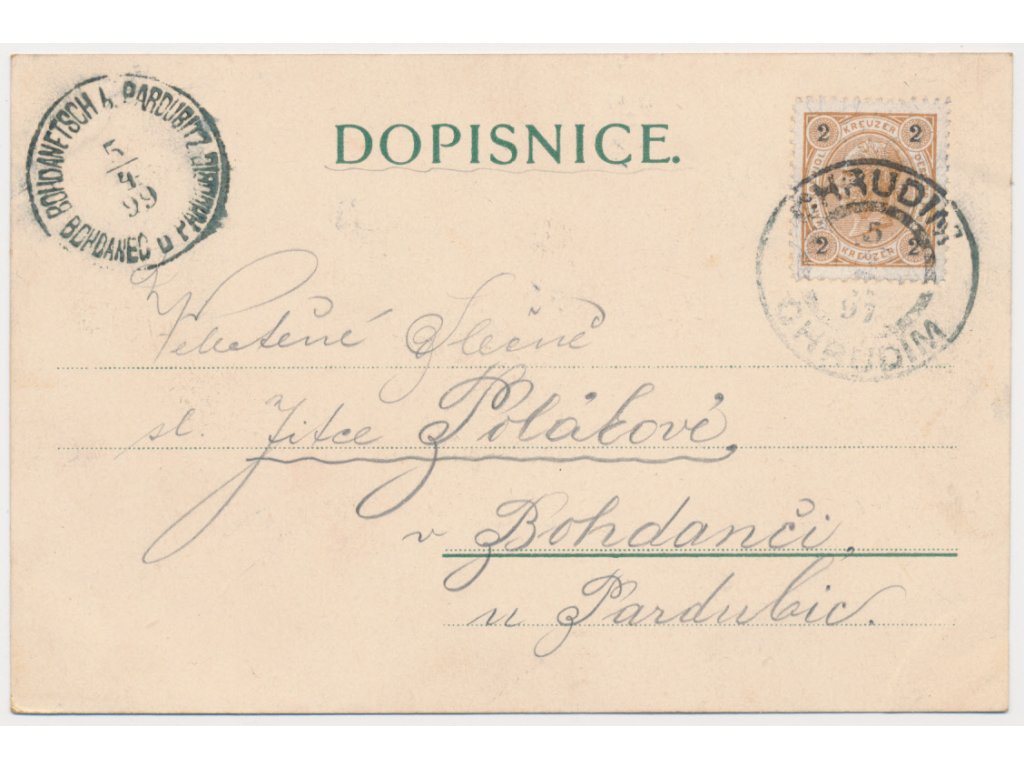 DOPISNICE.
BOHDANETSCH b. PARDUBITZ
5/4 99
BOHDANEC U PARDUBIC
2 KREUZER 2
2 KREUZER 2
CHRUDIM
5
CHRUDIM
Velectěné Slečně
sl. Jitce Polákové,
v Bohdanči,
u Pardubic.